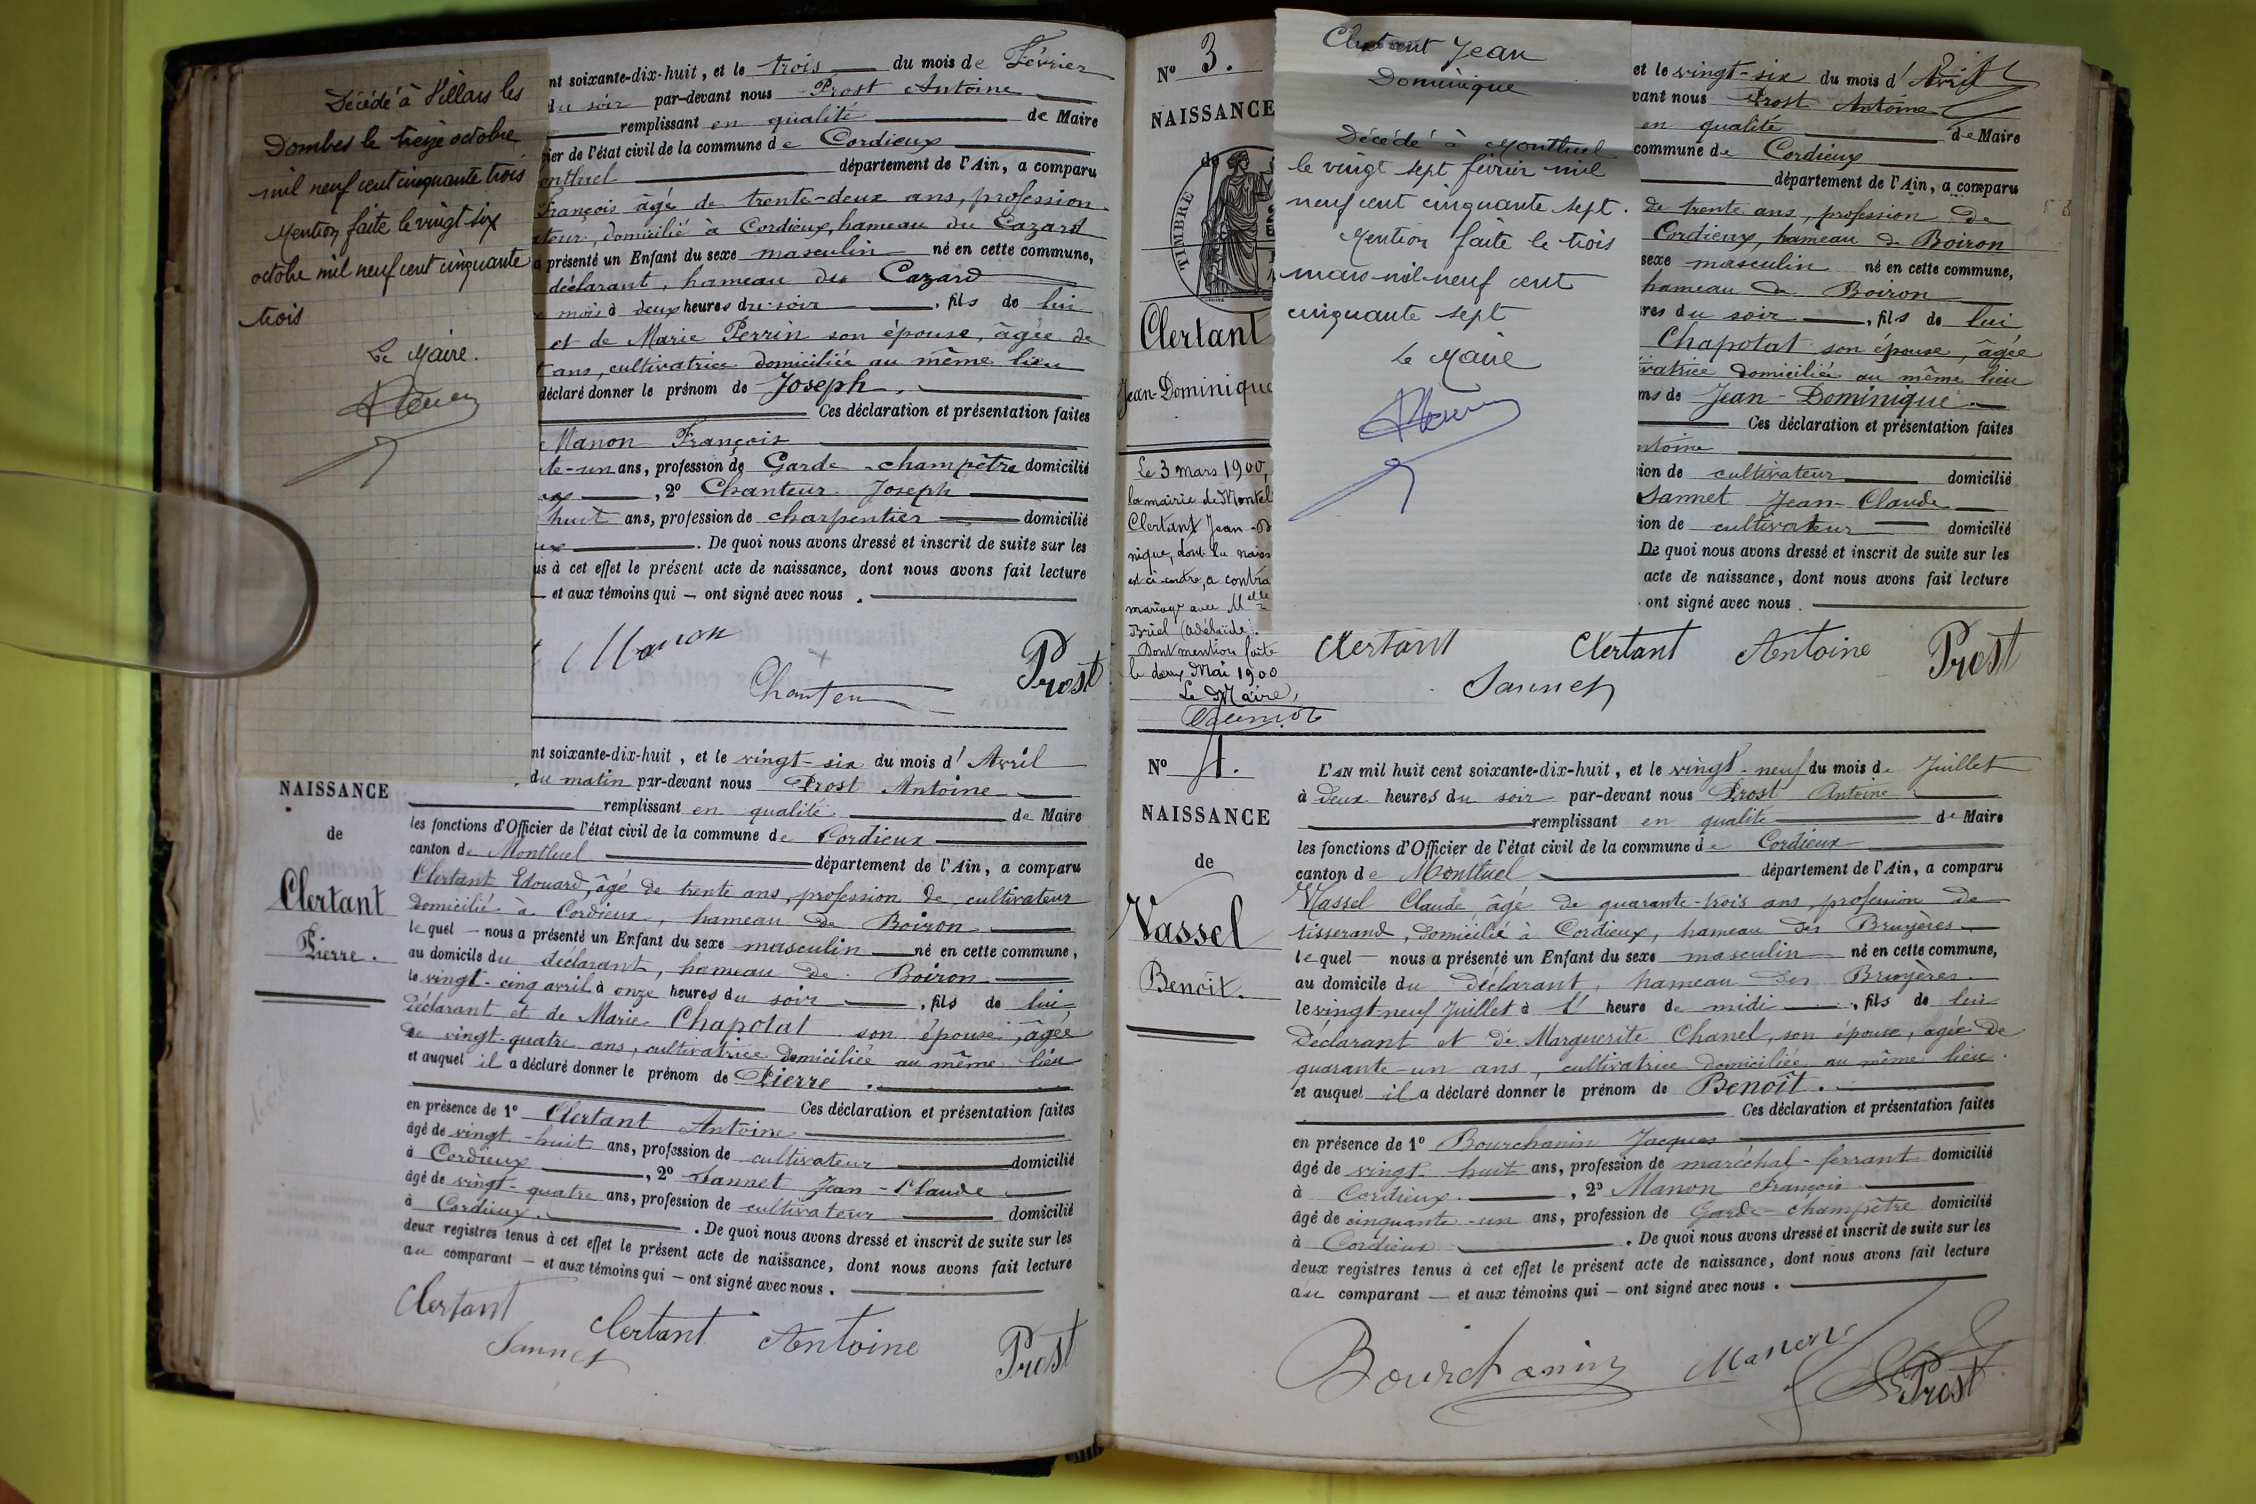 Décédé à Villars les
Dombes le treize octobre
mil neuf cent cinquante trois
Mention faite le vingt six
octobre mil neuf cent cinquante
trois
Le Maire.
nt soixante-dix-huit, et le trois du mois de Février
du soir par-devant nous Prost Antoine
remplissant en qualité de Maire
ier de l'état civil de la commune de Cordieux
ontluel département de l'Ain, a comparu
François âgé de trente-deux ans, profession
ateur, domicilié à Cordieux, hameau du Cazard
a présenté un Enfant du sexe masculin né en cette commune,
déclarant, hameau du Cazard
mois à deux heures du soir, fils de lui
et de Marie Perrin son épouse, âgée de
ans, cultivatrice domiciliée au même lieu
déclaré donner le prénom de Joseph.
Ces déclaration et présentation faites
Manon François
te-un ans, profession de Garde-champêtre domicilié
, 2º Chanteur Joseph
huit ans, profession de charpentier domicilié
ux. De quoi nous avons dressé et inscrit de suite sur les
us à cet effet le présent acte de naissance, dont nous avons fait lecture
et aux témoins qui ont signé avec nous.
Manon
Chanteur
Prost
NAISSANCE
de
Clertant
Pierre.
nt soixante-dix-huit, et le vingt-six du mois d'Avril
du matin par-devant nous Prost Antoine
remplissant en qualité de Maire
les fonctions d'Officier de l'état civil de la commune de Cordieux
canton de Montluel département de l'Ain, a comparu
Clertant Edouard, âgé de trente ans, profession de cultivateur
domicilié à Cordieux, hameau de Boiron
lequel nous a présenté un Enfant du sexe masculin né en cette commune,
au domicile du déclarant, hameau de Boiron
le vingt-cinq avril à onze heures du soir, fils de lui
déclarant et de Marie Chapotat son épouse, âgée
de vingt-quatre ans, cultivatrice domiciliée au même lieu
et auquel il a déclaré donner le prénom de Pierre.
Ces déclaration et présentation faites
en présence de 1º Clertant Antoine
âgé de vingt-huit ans, profession de cultivateur domicilié
à Cordieux, 2º Sannet Jean-Claude
âgé de vingt-quatre ans, profession de cultivateur domicilié
à Cordieux. De quoi nous avons dressé et inscrit de suite sur les
deux registres tenus à cet effet le présent acte de naissance, dont nous avons fait lecture
au comparant et aux témoins qui ont signé avec nous.
Clertant
Sannet
Clertant Antoine
Prost
Nº 3.
NAISSANCE
de
TIMBRE
Clertant
Jean-Dominique
Le 3 mars 1900,
la mairie de Montel
Clertant Jean-D
nique, dont la nais
est ci-contre, a contra
mariage avec Melle
Briel (Adélaïde).
Dont mention faite
le deux Mai 1900
Le Maire,
Clertant Jean
Dominique
Décédé à Montluel
le vingt sept février mil
neuf cent cinquante sept.
Mention faite le trois
mars mil neuf cent
cinquante sept
Le Maire
et le vingt-six du mois d'Avril
vant nous Prost Antoine
en qualité de Maire
commune de Cordieux
département de l'Ain, a comparu
de trente ans, profession de
Cordieux, hameau de Boiron
sexe masculin né en cette commune,
hameau de Boiron
res du soir, fils de lui
Chapotat son épouse, âgée
vatrice domiciliée au même lieu
ms de Jean-Dominique.
Ces déclaration et présentation faites
ntoine
ion de cultivateur domicilié
Sannet Jean-Claude
ion de cultivateur domicilié
De quoi nous avons dressé et inscrit de suite sur les
acte de naissance, dont nous avons fait lecture
ont signé avec nous.
Clertant
Clertant Antoine
Prost
Sannet
Nº 4.
NAISSANCE
de
Vassel
Benoît.
L'AN mil huit cent soixante-dix-huit, et le vingt-neuf du mois de Juillet
à deux heures du soir par-devant nous Prost Antoine
remplissant en qualité de Maire
les fonctions d'Officier de l'état civil de la commune de Cordieux
canton de Montluel département de l'Ain, a comparu
Vassel Claude, âgé de quarante-trois ans, profession de
tisserand, domicilié à Cordieux, hameau des Bruyères
lequel nous a présenté un Enfant du sexe masculin né en cette commune,
au domicile du déclarant, hameau des Bruyères.
le vingt neuf Juillet à l' heure de midi, fils de lui
déclarant et de Marguerite Chanel, son épouse, âgée de
quarante-un ans, cultivatrice domiciliée au même lieu.
et auquel il a déclaré donner le prénom de Benoît.
Ces déclaration et présentation faites
en présence de 1º Bourchanin Jacques
âgé de vingt-huit ans, profession de maréchal-ferrant domicilié
à Cordieux, 2º Manon François
âgé de cinquante-un ans, profession de Garde-champêtre domicilié
à Cordieux. De quoi nous avons dressé et inscrit de suite sur les
deux registres tenus à cet effet le présent acte de naissance, dont nous avons fait lecture
au comparant et aux témoins qui ont signé avec nous.
Bourchanin
Manon
Prost